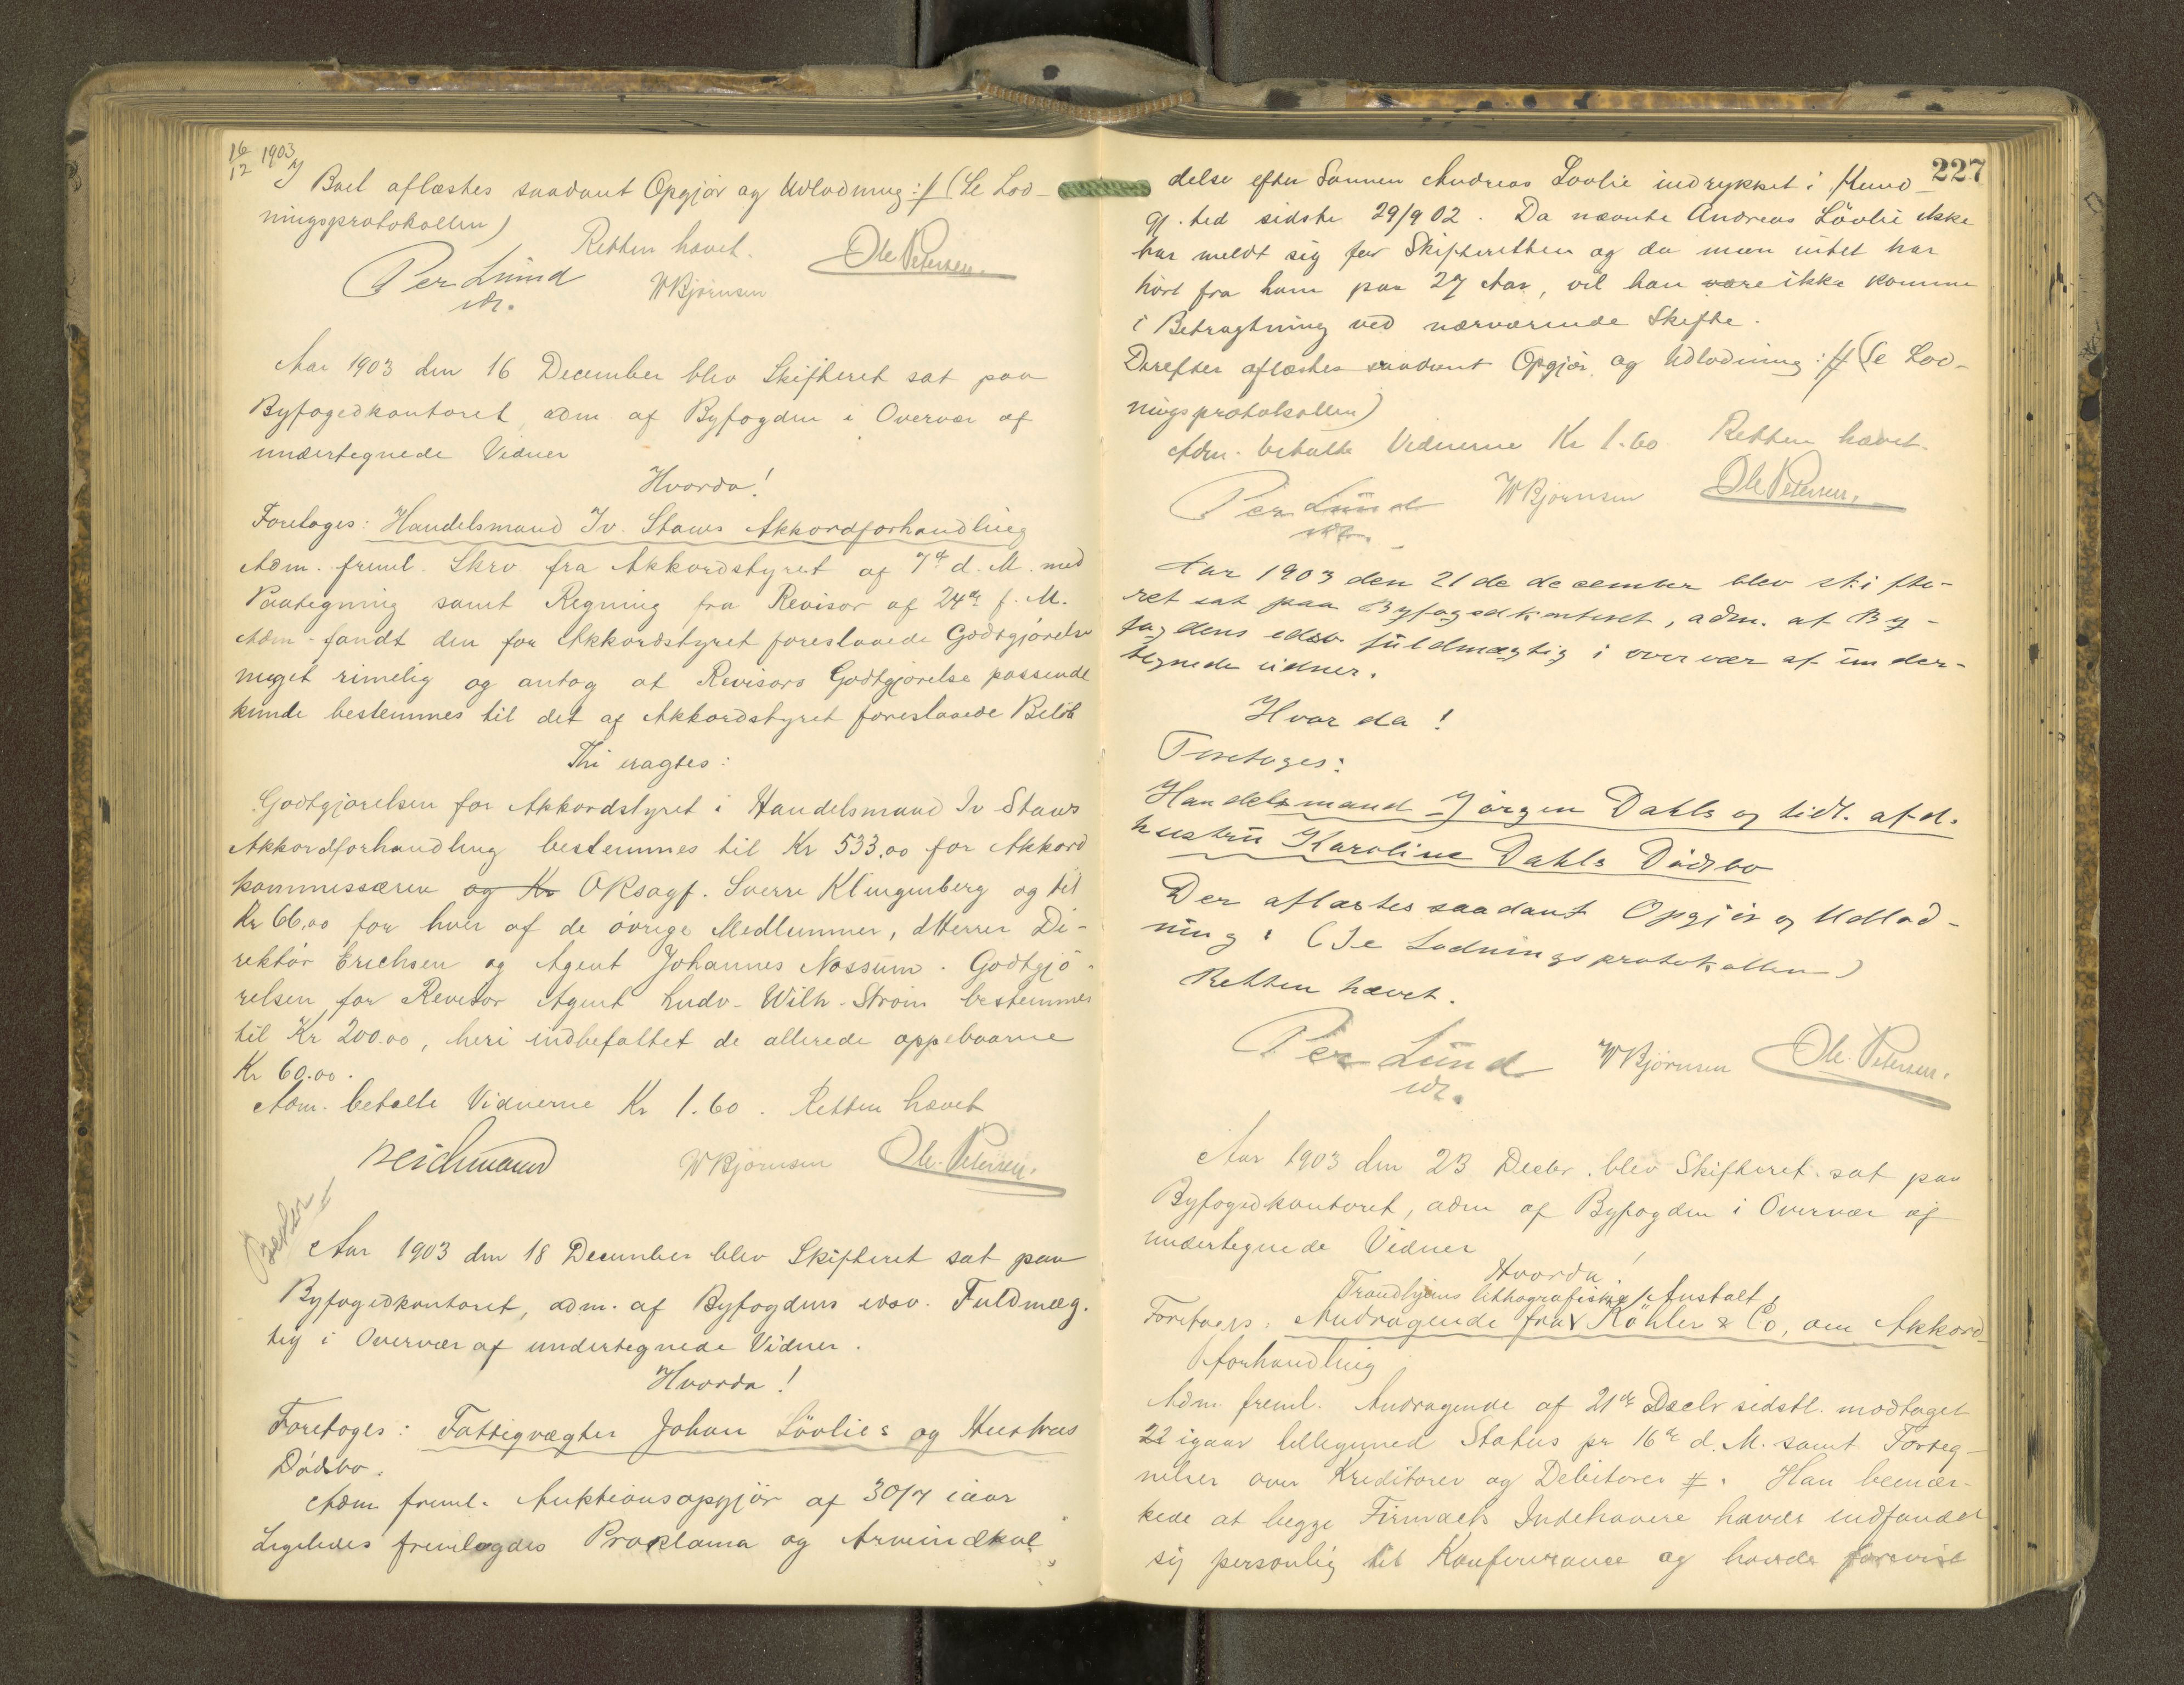 16/12 1903
I Boet aflæstes saadant Opgjör og Udlodning :// (Se Lod-
ningsprotokollen)
Retten hævet.
Per Lund WBjörnsen Ole Petersen.
Aar 1903 den 16 December blev Skifteret sat paa
Byfogedkontoret, adm af Byfogden i Overvær af
undertegnede Vidner
Hvorda!
Foretoges: Handelsmand Iv. Staws Akkordforhandling
Adm. freml. Skrv. fra Akkordstyret af 7de d. M. med
Paategning samt Regning fra Revisor af 24de f. M.
Adm. fandt den for Akkordstyret foreslaaede Godtgjörelse
meget rimelig og antog at Revisors Godtgjörelse passende
kunde bestemmes til det af Akkordstyret foreslaaede Belöb
Thi eragtes:
Godtgjörelsen for Akkordstyret i Handelsmand Iv Staws
Akkordforhandling bestemmes til Kr 533.00 for Akkord
kommissæren og Kr ORsagf. Sverre Klingenberg og til
Kr 66,00 for hver af de övrige Medlemmer, dHerrer Di-
rektör Erichsen og Agent Johannes Nossum. Godtgjö-
relsen for Revisor Agent Ludv. Wilh. Ström bestemmes
til Kr 200.00, heri indbefattet de allerede oppebaarne
Kr 60.00.
Adm. betalte Vidnerne Kr 1.60. Retten hævet
WBjörnsen Ole Petersen.
Aar 1903 den 18 December blev Skifteret sat paa
Byfogedkontoret, adm. af Byfogdens edsv. Fuldmæg-
tig i Overvær af undertegnede Vidner.
Hvorda!
Foretoges: Fattigvægter Johan Lövlies og Hustrus
Dödsbo.
Adm freml. Auktionsopgjör af 30/7 iaar
Ligeledes fremlagdes Proklama og Arveindkal-
227
delse efter Sönnen Andreas Lövlie indrykket i Kund-
gj. tid sidste 29/9 02. Da nævnte Andreas Lövlie ikke
har meldt sig for Skifteretten og da man intet har
hört fra ham paa 27 Aar, vil han være ikke komme
i Betragtning ved nærværende Skifte.
Derefter aflæstes saadant Opgjör og Udlodning :// (Se Lod-
ningsprotokollen)
Adm. betalte Vidnerne Kr 1.60 Retten hævet.
Per Lund WBjörnsen Ole Petersen.
Aar 1903 den 21de december blev skifte-
ret sat paa Byfogedkontoret, adm. af By-
fogdens edsv. fuldmægtig i overvær af under-
tegnede vidner.
Hvor da!
Foretoges:
Handelsmand Jörgen Dahls og tidl. afd.
hustru Karoline Dahls Dödsbo
Der aflæstes saadant Opgjör og Udlod-
ning: (Se Lodningsprotokollen)
Retten hævet.
Per Lund WBjörnsen Ole Petersen.
Aar 1903 den 23 Decbr. blev Skifteret sat paa
Byfogedkontoret, adm af Byfogden i Overvær af
undertegnede Vidner
Hvorda!
Trondhjems lithografiske Anstalt,
Foretoges: Andragende fra Köhler & Co, om Akkord-
forhandling
Adm. freml. Andragende af 21de Decbr sidstl. modtaget
22 igaar billignemed Status pr 16de d. M. samt Forteg-
nelser over Kreditorer og Debitorer #. Han bemær-
kede at begge Firmaets Indehavere havde indfundet
sig personlig til Konferance og havde forevist